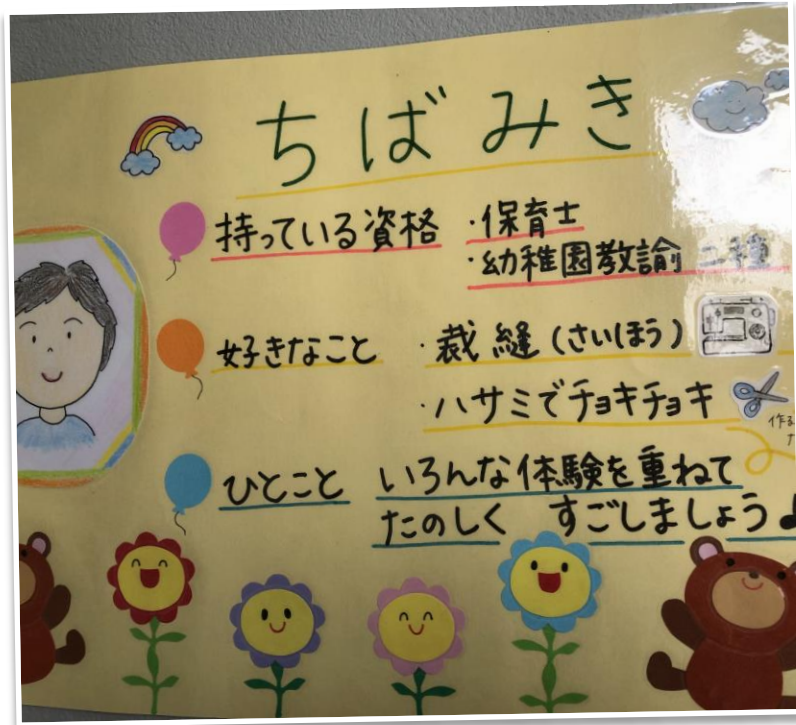 ちばみき
持っている資格 ・保育士
・幼稚園教諭 二種
好きなこと ・裁縫(さいほう)
・ハサミでチョキチョキ
ひとこと いろんな体験を重ねて
たのしく すごしましょう♪